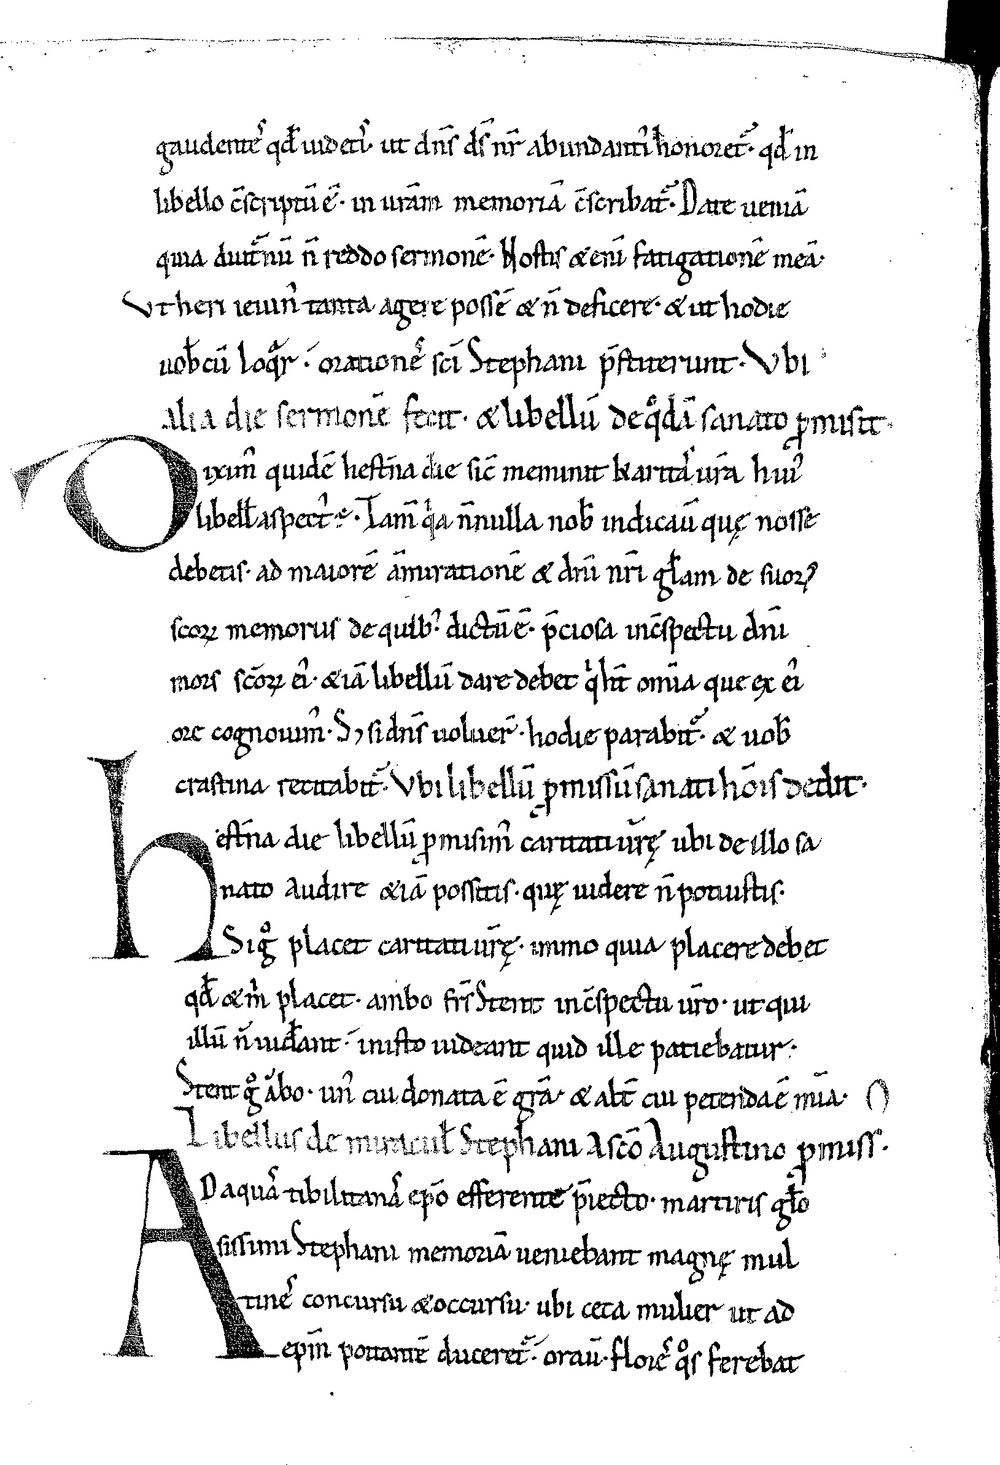 gaudentes qđ uidetis· ut dn̄s ds̄ nr̄ abundanti honoret᷑· qđ in
libello c̄scriptū ē· in urām memoriā c̄scribat᷑· Date ueniā
quia diut᷑nū n̄ reddo sermonē· Nostis & enī fatigationē meā·
Vt heri ieiun᷒ tanta agere possē & n̄ deficere· & ut hodie
uob̄cū loqr̄· orationes sc̄i Stephani p̄stiterunt· Vbi
alia die sermonē fecit· & libellū de qͦdā sanato ꝓmisit·
Dixim᷒ quidē hest̄na die sic̄ meminit karitas ur̄a hui᷒
libell aspect᷒ Tam̄ qͣa n̄nulla nob̄ indicaū quę nosse
debetis· ad maiorē āmirationē & dn̄i nr̄i gl̄am de suoꝝ
scoꝝ memoriis de quib᷒ dictū ē· p̄ciosa inc̄spectu dn̄i
mors sc̄oꝝ ei᷒· & iā libellū dare debet qͥ ht̄ om̄ia que ex ei᷒
ore cognouim᷒· S; si dn̄s uoluer̄· hodie parabit᷑· & uob̄
crastina recitabit᷑· Vbi libellū ꝓmissū sanati hōis dedit·
hest̄na die libellū ꝓmisim᷒ caritati ur̄ę ubi de illo sa
nato audire & iā possetis· quę uidere n̄ potuistis·
Si gͦ placet caritati ur̄ę· immo quia placere debet
qđ & m̄ placet· ambo fr̄s Stent inc̄spectu ur̄o· ut qui
illū n̄ uid̄ant· inisto uideant quid ille patiebatur·
Stent gͦ ābo· un᷒ cui donata ē grā· & alt̄ cui petenda ē mīa·
Libellus de miracul̄ Stephani A scō Augustino ꝓmiss᷒·
ADaquā tibilitanā ep̄o efferente p̄iecto· martiris gl̄o
sissimi Stephani memoriā ueniebant magnę mul
tines concursu & occursu· ubi ceca mulier ut ad
ep̄m portantē duceret᷑· oraū· flores qͦs ferebat